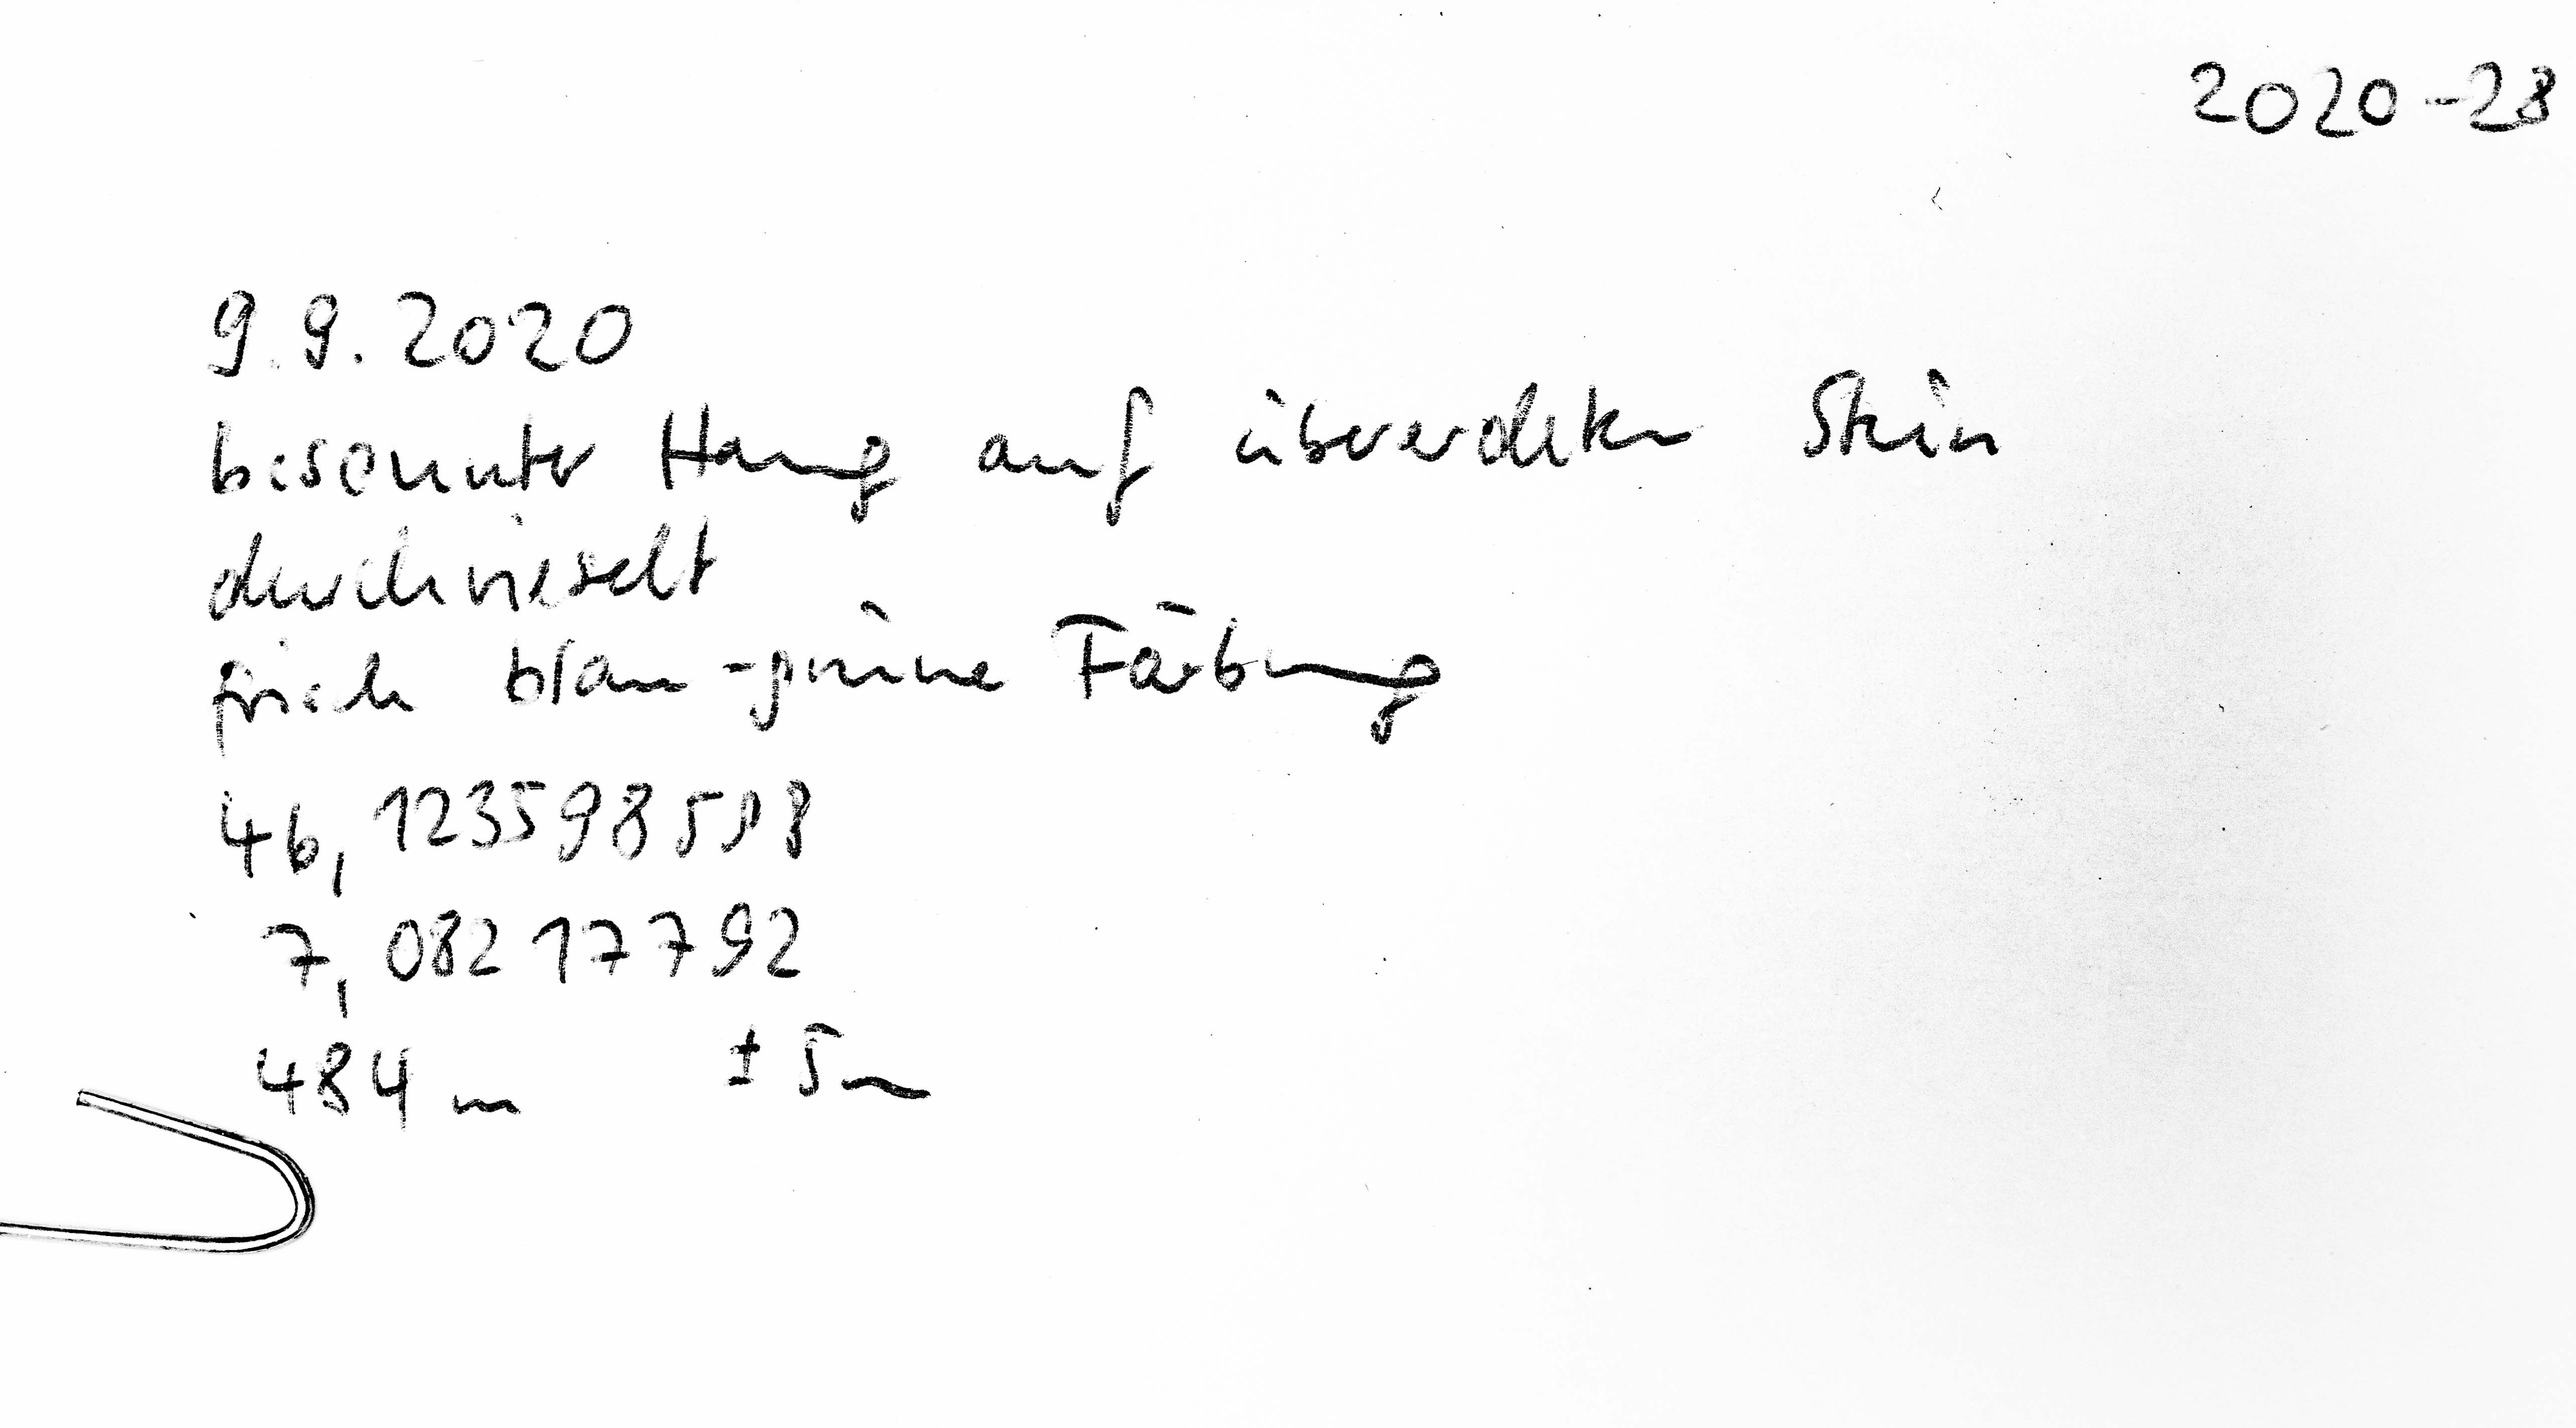 2020-28
9.9.2020
besonnter Hang auf übererdeten Stein
durchrieselt
frisch blau-grüne Färbung
46,123598598
7,08217792
484 m ± 5m